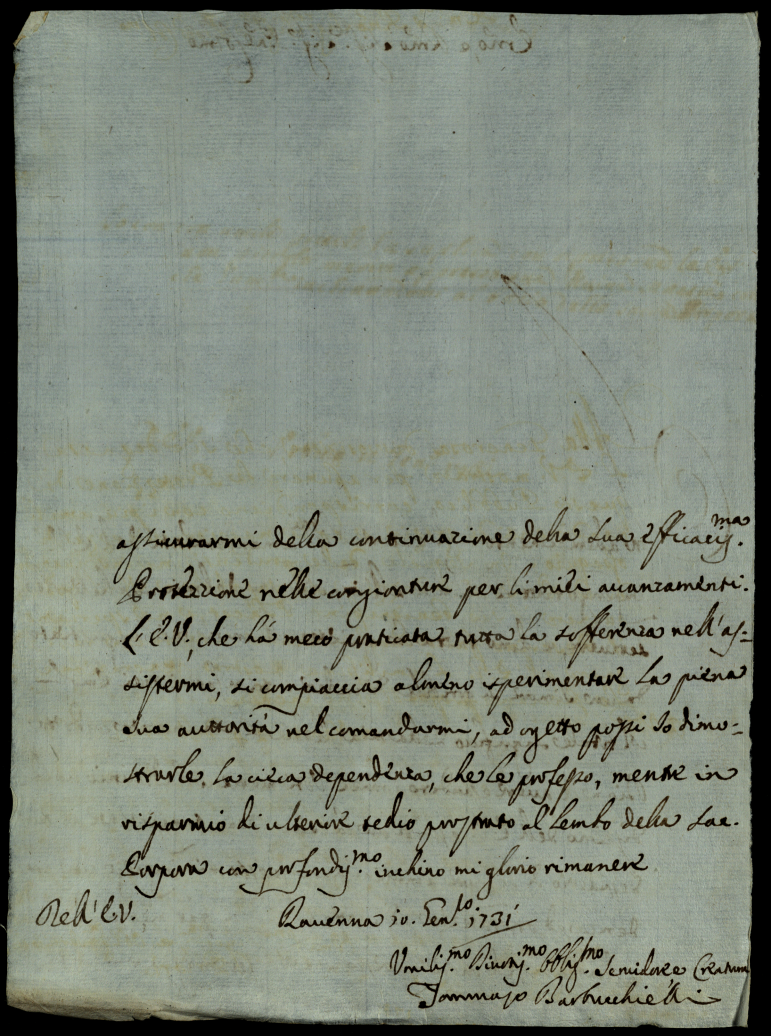 assicurarmi della continuazione della sua efficacis.ma
Protezzione nelle congionture per li miei avanzamenti.
L'E.V., che há meco praticata tutta la sofferenza nell'as-
sistermi, si compiaccia almeno isperimentare la piena
sua auttoritá nel comandarmi, ad ogetto possi Io dimo-
strarle la cieca dependenza, che le professo, mentre in
risparmio di ulterior tedio prostrato al lembo della Sac.
Porpora con profondis.mo inchino mi glorio rimanere
Dell'E.V.
Ravenna 10. Gen.ro 1731
Umilis.mo Divotis.mo Obblig.mo Servidore e Creatura
Tommaso